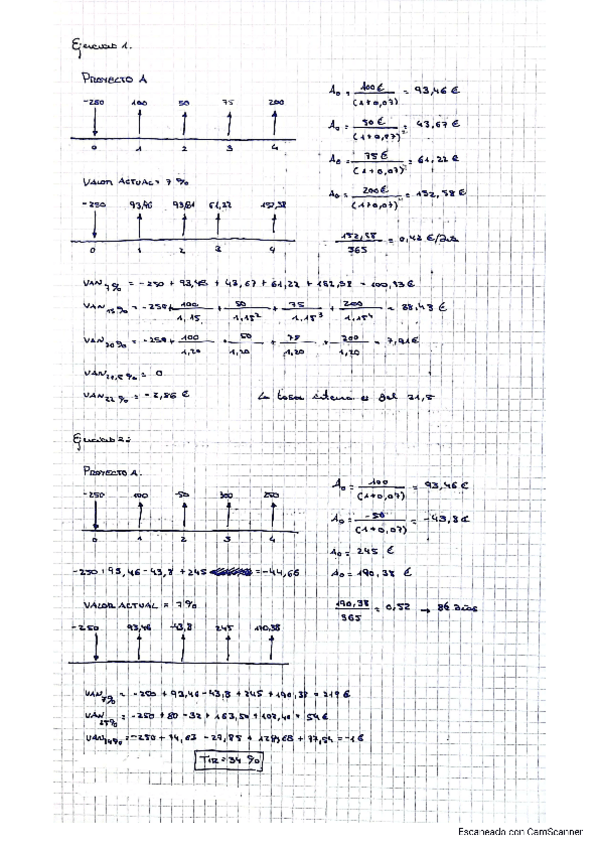 Ejercicio 1.
PROYECTO A
-250 100 50 75 200
0 1 2 3 4
A₀ = 100€ / (1+0,07) = 93,46 €
A₀ = 50€ / (1+0,07) = 43,67 €
A₀ = 75€ / (1+0,07) = 61,22 €
A₀ = 200€ / (1+0,07) = 152,58 €
VALOR ACTUAL = 7%
-250 93,46 61,22
0 1 2 3 4
152,58 / 365 = 0,42 €/día
VAN 7% = -250 + 93,46 + 43,67 + 61,22 + 152,58 = 100,93€
VAN 15% = -250 + 100 / 1,15 + 50 / 1,15² + 75 / 1,15³ + 200 / 1,15⁴ = 38,43 €
VAN 20% = -250 + 100 / 1,20 + 50 / 1,20 + 75 / 1,20 + 200 / 1,20 = 7,91€
VAN 21,5% = 0
VAN 22% = -2,86 €
La tasa interna es del 21,5
Ejercicio 2:
PROYECTO A.
-250 100 -50 300 250
0 1 2 3 4
A₀ = 100 / (1+0,07) = 93,46 €
A₀ = -50 / (1+0,07) = -43,8 €
A₀ = 245 €
A₀ = 190,38 €
-250 + 93,46 - 43,8 + 245 = -44,66
190,38 / 365 = 0,52 → 86 días
VALOR ACTUAL = 7%
-250 93,46 -43,8 245 190,38
VAN 7% = -250 + 93,46 - 43,8 + 245 + 190,38 = 219 €
VAN 25% = -250 + 80 - 32 + 153,50 + 102,40 = 54€
= -250 + 74,63 - 27,85 + 128,68 + 77,54 = -1€
TIR = 34 %
Escaneado con CamScanner